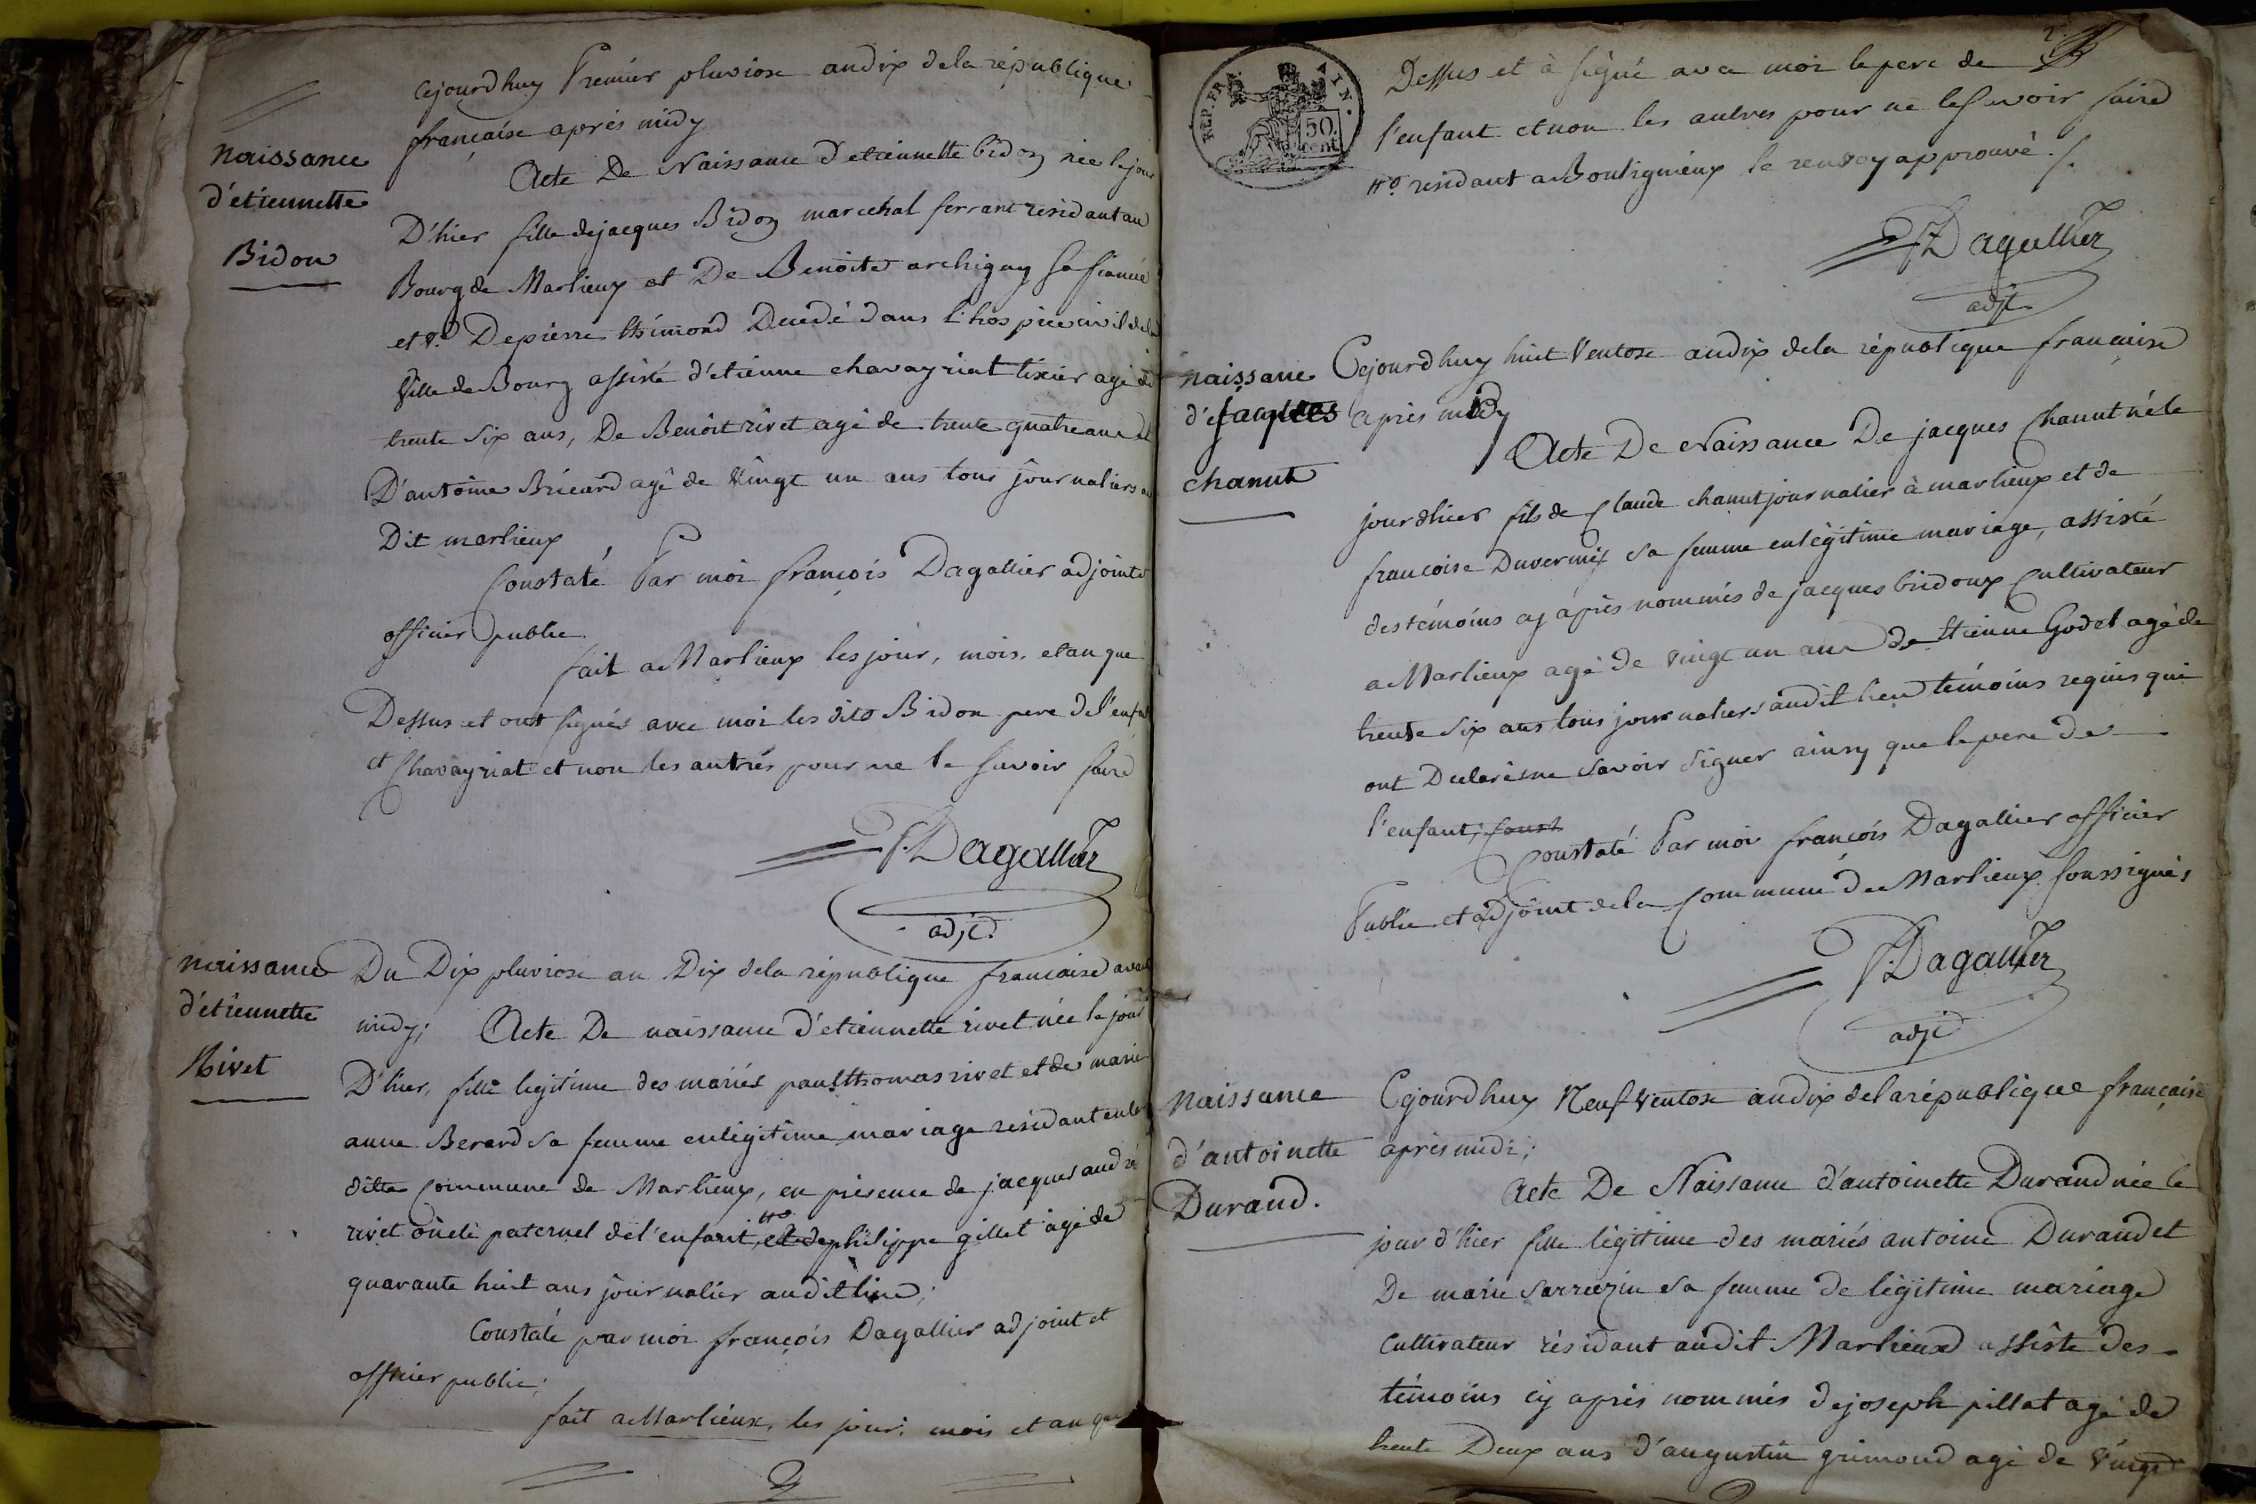 Cejourdhuy Premier pluviose andix dela république
française aprés midy
naissance
d'étiennette
Bidon
Acte De Naissance D'etiennette bidon née le jour
D'hier fille dejacques Bidon marechal ferrant residant au
Bourg de Marlieux et De Benoite archigny sa
et Depierre Décédé dans l'hospice civil dela
Ville de Bourg assisté d'etienne chavayriat tixier agé de
trente Six ans, De Benoit rivet agé de trente quatre ans et
D'antoine Bricard agé de Vingt un ans tous journaliers au
Dit marlieux
Constaté Par moi françois Dagallier adjoint
officier public
fait a Marlieux les jour, mois, et an que
Dessus et ont signés avec moi les dits Bidon pere de l'enfant
et Chavayriat et non les autrés pour ne le savoir faire
F. Dagallier
adjt.
naissance
d'étiennette
Rivet
Du Dix pluviose an Dix dela république francaise avant
midy; Acte De naissance d'etiennette rivet née le jour
D'hier, fille legitime des mariés paul thomas rivet et de marie
anne Berard sa femme enlégitime mariage residant enla
ditte Commune de Marlieux, en présence de jacques andré
rivet oncle paternel de l'enfant, et de philippe gillet agé de
quarante huit ans journalier audit lieu;
Constaté par moi françois Dagallier adjoint et
officier public;
fait a Marlieux, les jour, mois et an que
REP. FRA. 50 cent
2
Dessus et à signé avec moi le pere de
l'enfant et non les autres pour ne le savoir faire
residant a Bouligneux le renvoy approuvé ./.
F. Dagallier
adjt
naissance
d'jacques
chanut
Cejourdhuy huit Ventose andix dela république francaise
aprés midy
Acte De Naissance De jacques Chanut né le
jour dhier fils de Claude chanut journalier à marlieux et de
francoise Duvernix sa femme enlégitime mariage, assisté
des témoins cy aprés nommés de jacques bridoux Cultivateur
a Marlieux agé de vingt un ans de Etienne Godet agé de
trente Six ans tous journaliers audit lieu témoins requis qui
ont Declarés ne savoir signer ainsy que le pere de
l'enfant; Const
Constaté Par moi françois Dagallier officier
Public et adjoint dela Commune de Marlieux soussignés
F. Dagallier
adjt
Naissance
d'antoinette
Durand.
Cejourdhuy Neuf Ventose andix delarépublique française
aprés midi;
Acte De Naissance d'antoinette Durand née le
jour d'hier fille légitime des mariés antoine Durand et
De marie sarrazin sa femme de légitime mariage
Cultivateur résidant audit Marlieux assisté des
témoins cy aprés nommés de joseph pillat agé de
trente Deux ans d'augustin grimond agé de Vingt